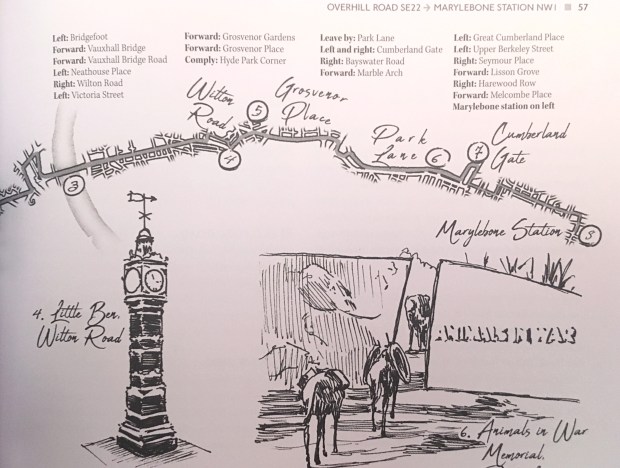 OVERHILL ROAD SE22 → MARYLEBONE STATION NW1 ■ 57
Left: Bridgefoot
Forward: Vauxhall Bridge
Forward: Vauxhall Bridge Road
Left: Neathouse Place
Right: Wilton Road
Left: Victoria Street
Forward: Grosvenor Gardens
Forward: Grosvenor Place
Comply: Hyde Park Corner
Leave by: Park Lane
Left and right: Cumberland Gate
Right: Bayswater Road
Forward: Marble Arch
Left: Great Cumberland Place
Left: Upper Berkeley Street
Right: Seymour Place
Forward: Lisson Grove
Right: Harewood Row
Forward: Melcombe Place
Marylebone station on left
Wilton
Road
5
Grosvenor
Place
4
3
Park
Lane
6
7
Cumberland
Gate
Marylebone Station
8
4. Little Ben,
Wilton Road
ANIMALS IN WAR
6. Animals in War
Memorial.